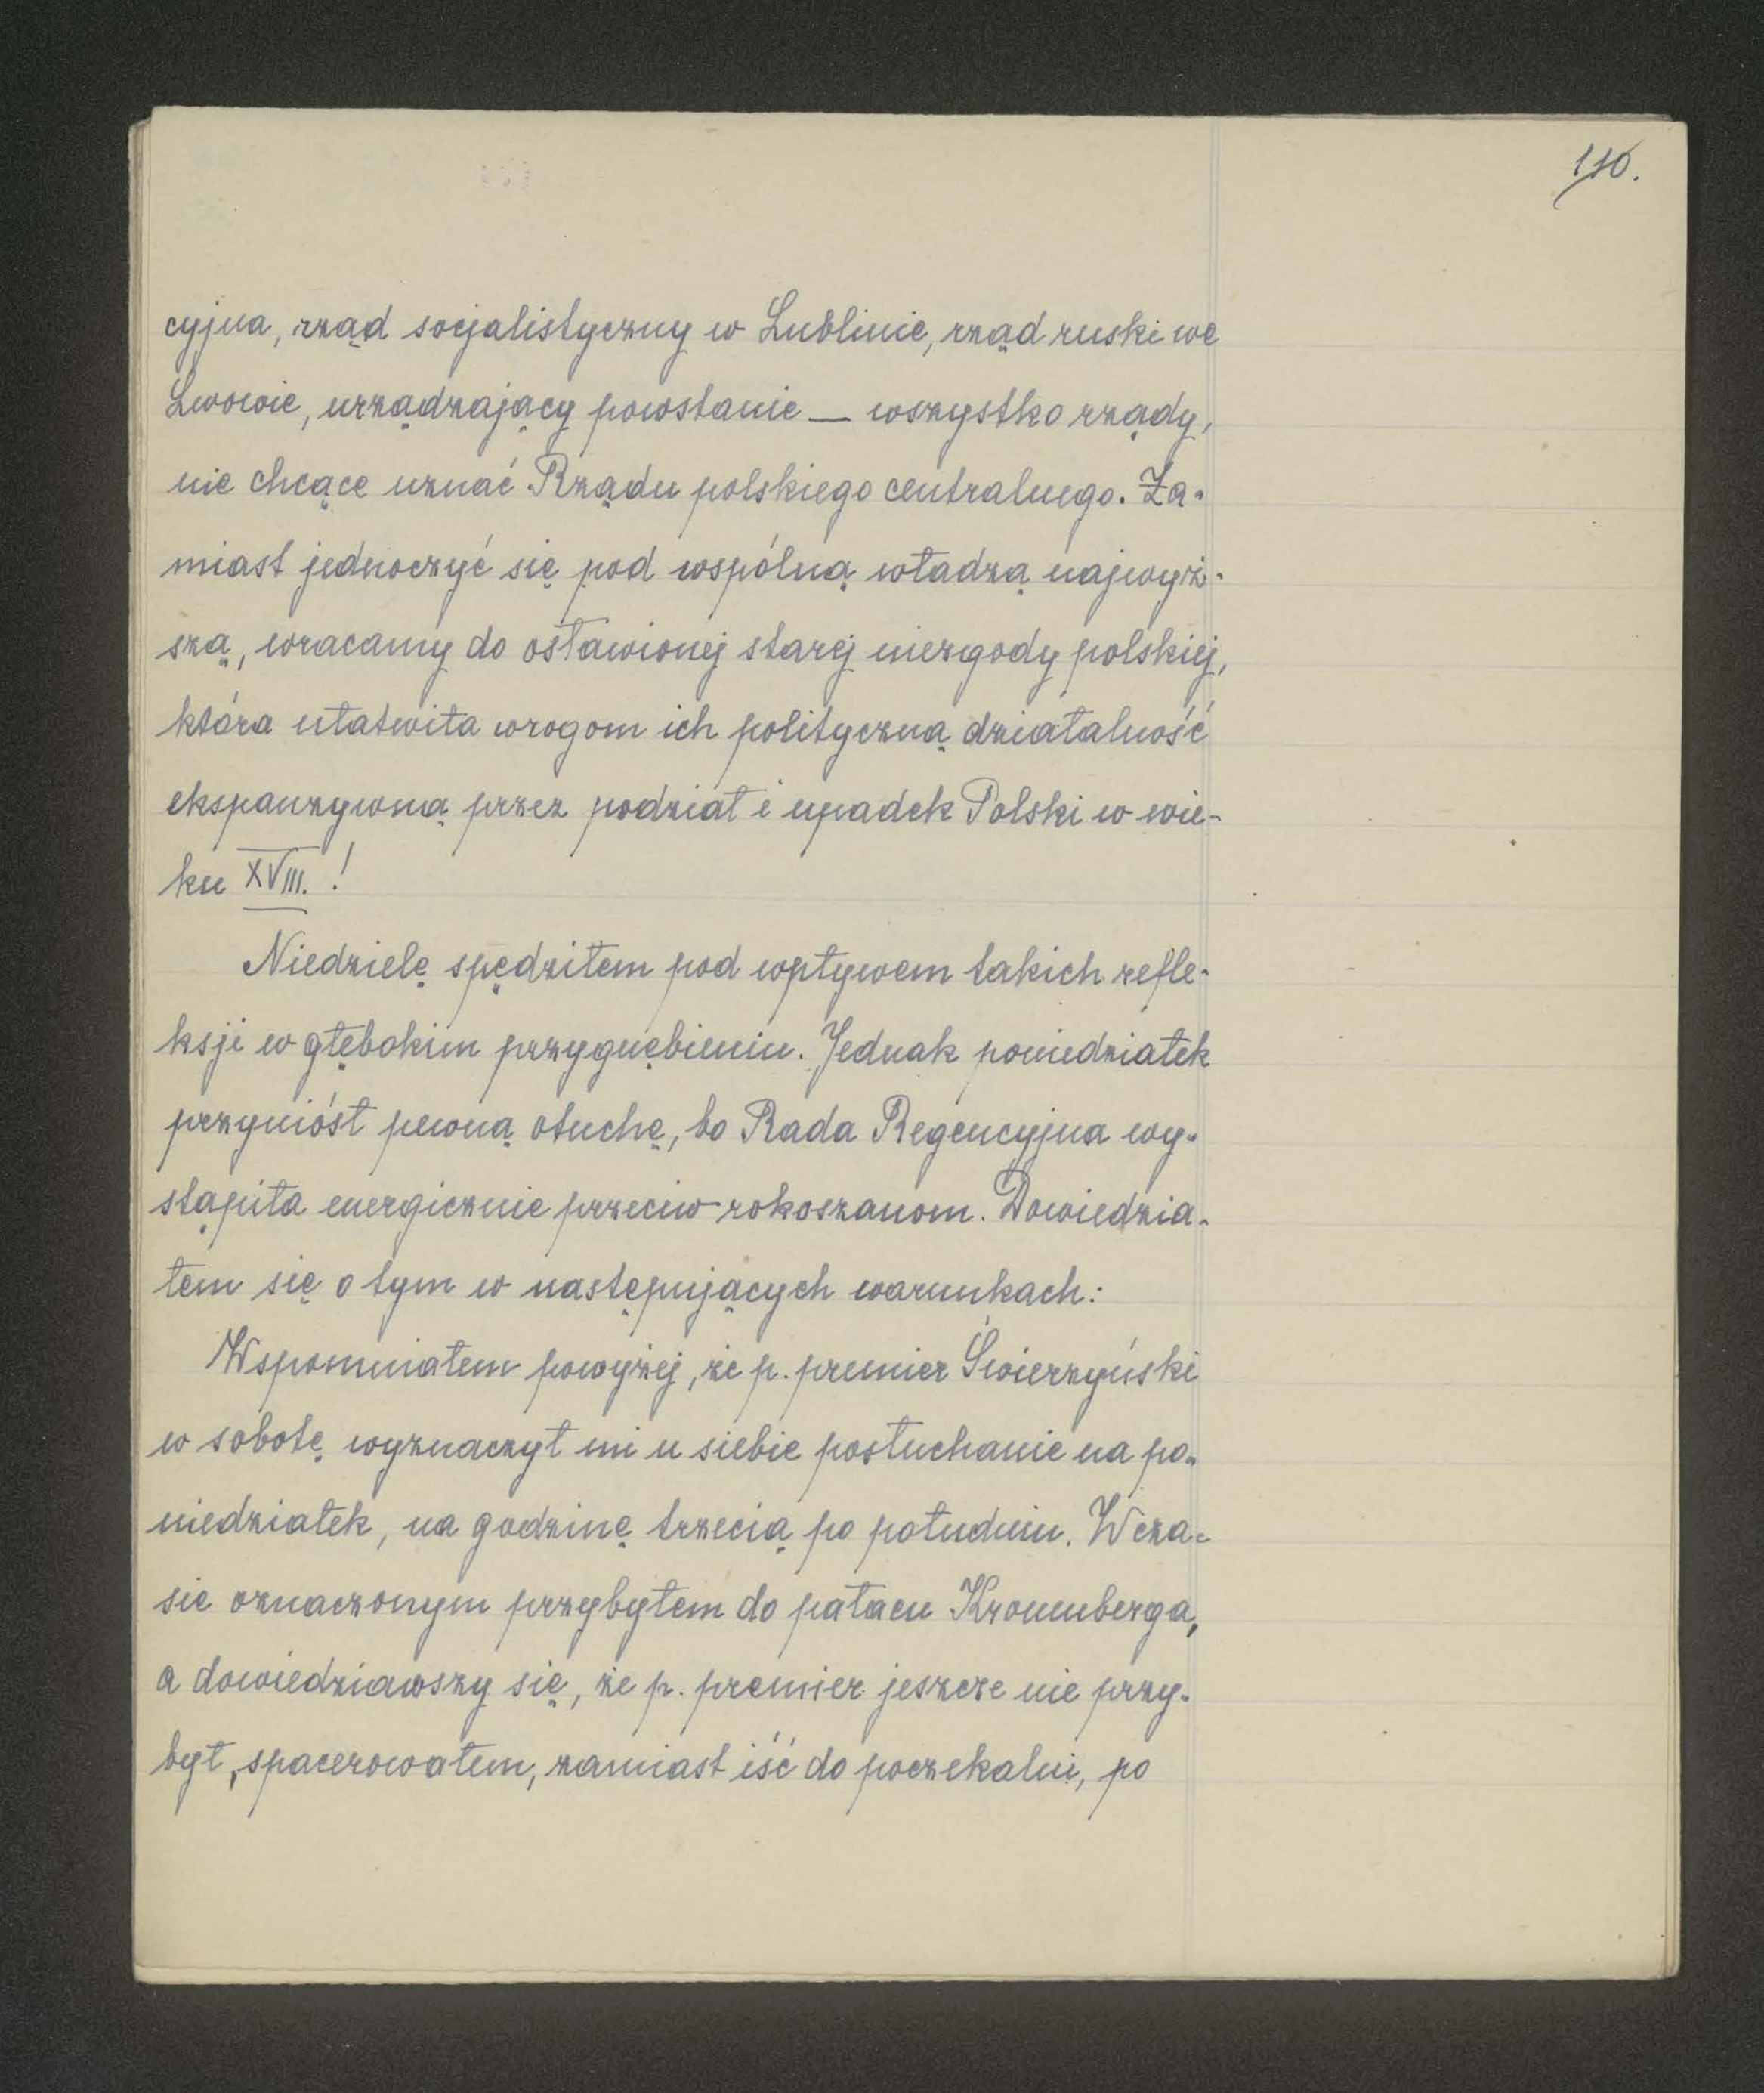 110.
cyjna, rząd socjalistyczny w Lublinie, rząd ruski we
Lwowie, urządzający powstanie — wszystko rządy,
nie chcące uznać Rządu polskiego centralnego. Za-
miast jednoczyć się pod wspólną władzą najwyż-
szą, wracamy do osławionej starej niezgody polskiej,
która ułatwiła wrogom ich polityczną działalność
ekspanzywną przez podział i upadek Polski w wie-
ku XVIII. !
Niedzielę spędziłem pod wpływem takich refle-
ksji w głębokim przygnębieniu. Jednak poniedziałek
przyniósł pewną otuchę, bo Rada Regencyjna wy-
stąpiła energicznie przeciw rokoszanom. Dowiedzia-
łem się o tym w następujących warunkach:
Wspomniałem powyżej, że p. premier Świerzyński
w sobotę wyznaczył mi u siebie posłuchanie na po-
niedziałek, na godzinę trzecią po południu. W cza-
sie oznaczonym przybyłem do pałacu Kronenberga,
a dowiedziawszy się, że p. premier jeszcze nie przy-
był, spacerowałem, zamiast iść do poczekalni, po